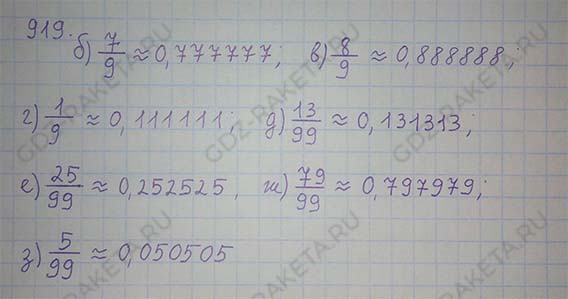 919.
б) 7/9 ≈ 0,777777; в) 8/9 ≈ 0,888888;
г) 1/9 ≈ 0,111111; д) 13/99 ≈ 0,131313;
е) 25/99 ≈ 0,252525, ж) 79/99 ≈ 0,797979;
з) 5/99 ≈ 0,050505
GDZ-RAKETA.RU
GDZ-RAKETA.RU
GDZ-RAKETA.RU